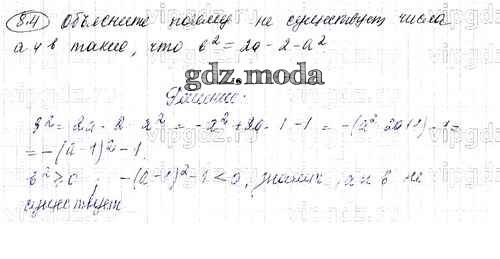 8.4 Объясните почему не существует числа
а и в такие, что в² = 2а - 2 - а²
gdz.moda
Решение:
в² = 2а - 2 - а² = -а² + 2а - 1 - 1 = -(а² - 2а + 1) - 1 =
= -(а - 1)² - 1.
в² ≥ 0 -(а - 1)² - 1 < 0, значит, а и в не
существует